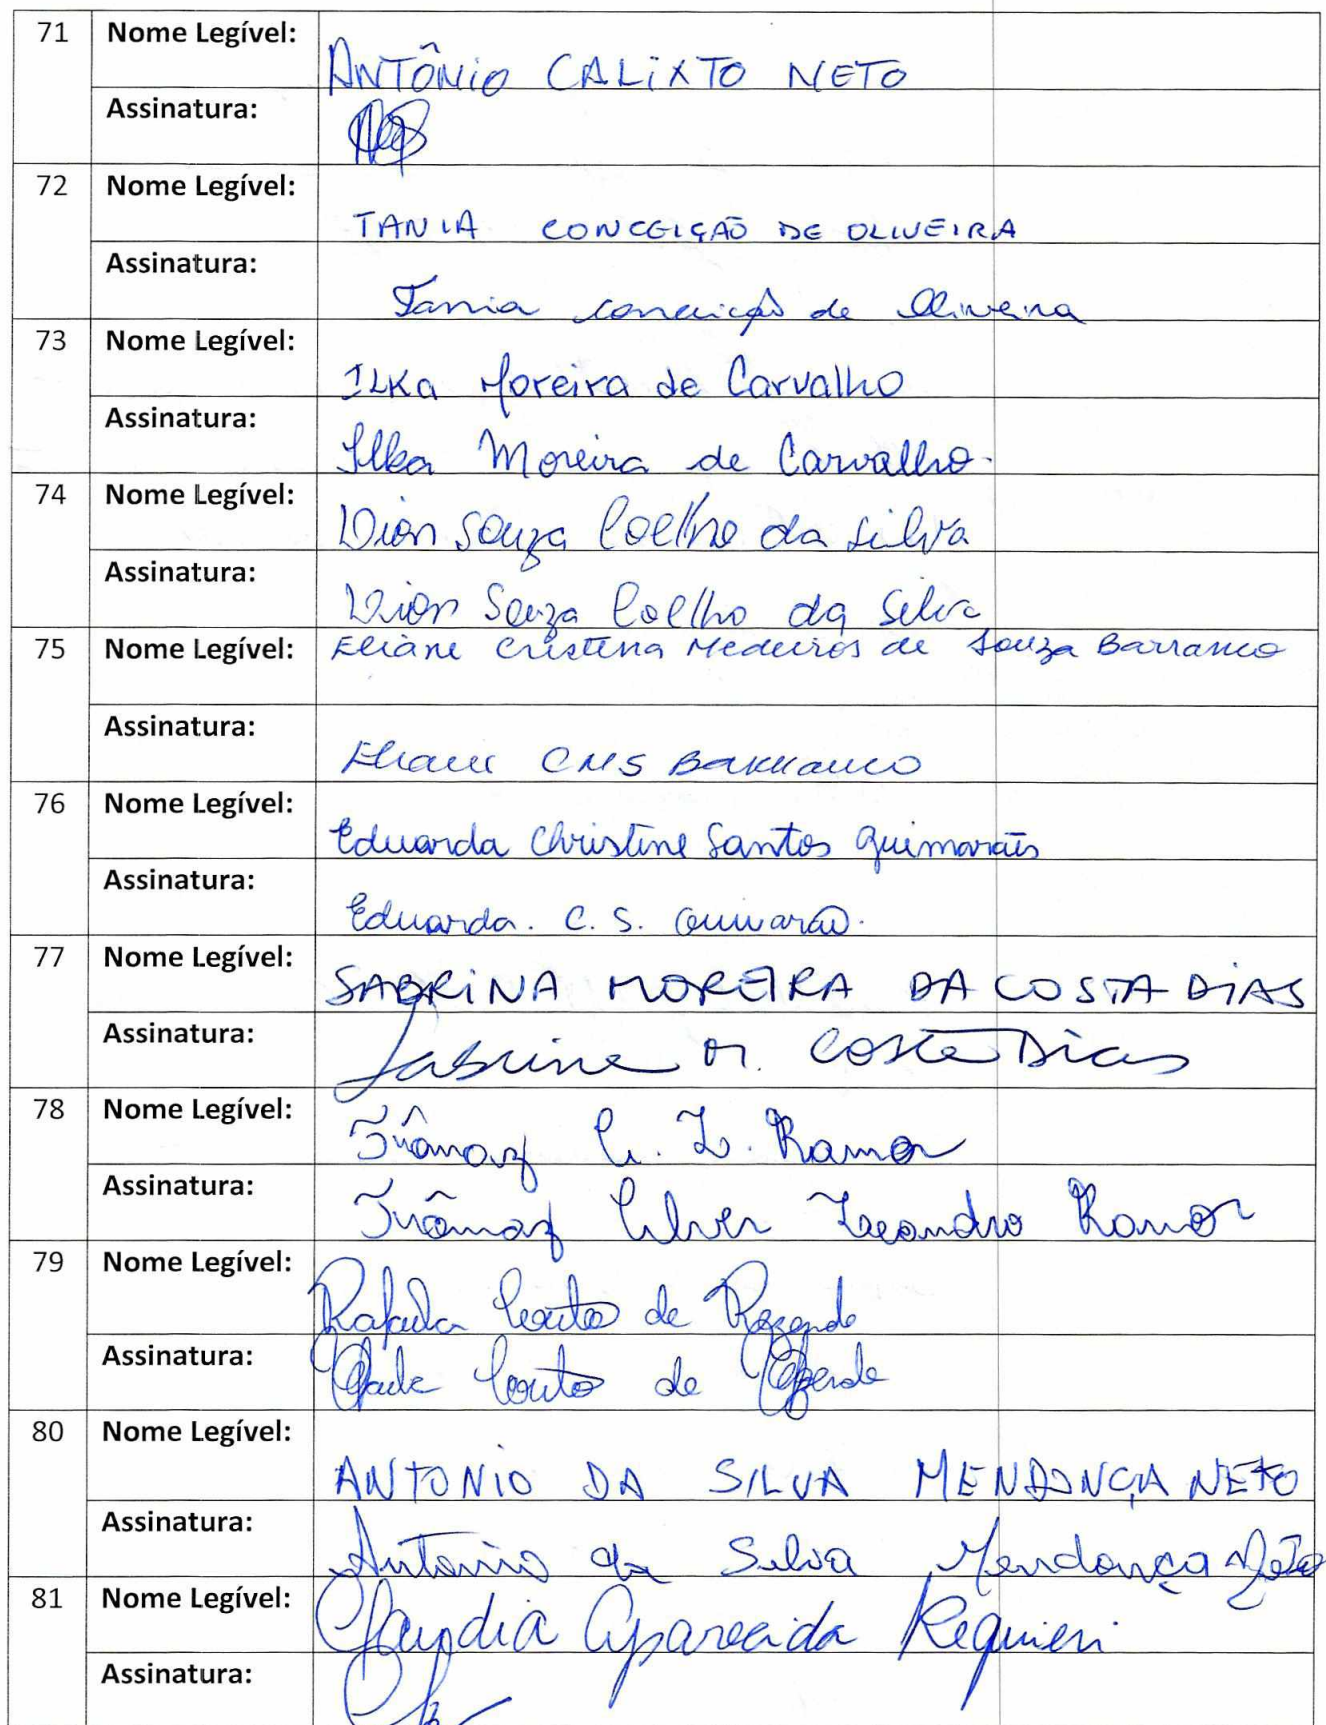 71 Nome Legível: ANTÔNIO CALIXTO NETO
Assinatura:
72 Nome Legível: TANIA CONCEIÇÃO DE OLIVEIRA
Assinatura: Tania Conceição de Oliveira
73 Nome Legível: ILKa Moreira de Carvalho
Assinatura: Ilka Moreira de Carvalho.
74 Nome Legível: Souza Coelho da Silva
Assinatura: Souza Coelho da Silva
75 Nome Legível: Eliane Cristina Medeiros de Souza Barranco
Assinatura: Eliane CMS Barranco
76 Nome Legível: Eduarda Christine Santos Guimarães
Assinatura: Eduarda. C. S. Guimarães.
77 Nome Legível: SABRINA MOREIRA DA COSTA DIAS
Assinatura: Sabrina M. Costa Dias
78 Nome Legível: Ramos
Assinatura: Leandro Ramos
79 Nome Legível: Rafaela Couto de Rezende
Assinatura: Couto de Rezende
80 Nome Legível: ANTONIO DA SILVA MENDONÇA NETO
Assinatura: Antonio da Silva Mendonça Neto
81 Nome Legível: Claudia Aparecida Requieri
Assinatura: